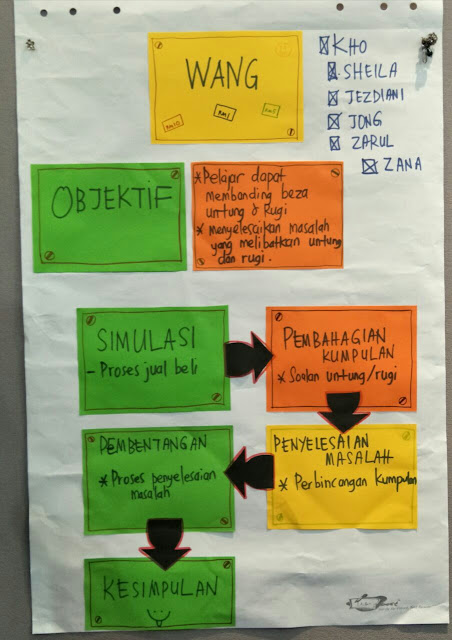 WANG
RM10
RM1
RM5
KHO
SHEILA
JEZDIANI
JONG
ZARUL
ZANA
OBJEKTIF
* Pelajar dapat
membanding beza
untung & Rugi
* menyelesaikan masalah
yang melibatkan untung
dan rugi.
SIMULASI
- Proses jual beli
PEMBAHAGIAN
KUMPULAN
* Soalan untung/rugi
PENYELESAIAN
MASALAH
* Perbincangan kumpulan
PEMBENTANGAN
* Proses penyelesaian
masalah
KESIMPULAN